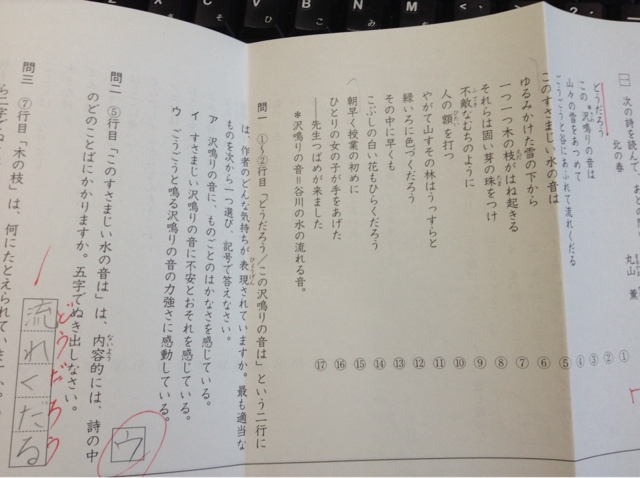 一 次の詩を読んで、
北の春
丸山 薫
どうだろう
この*沢鳴りの音は
山々の雪をあつめて
ごうごうと谷にあふれて流れくだる
このすさまじい水の音は
ゆるみかけた雪の下から
一つ一つ木の枝がはね起きる
それらは固い芽の珠をつけ
不敵なむちのように
人の額を打つ
やがて山すその林はうっすらと
緑いろに色づくだろう
その中に早くも
こぶしの白い花もひらくだろう
朝早く授業の初めに
ひとりの女の子が手をあげた
――先生つばめが来ました
*沢鳴りの音=谷川の水の流れる音。
① ② ③ ④ ⑤ ⑥ ⑦ ⑧ ⑨ ⑩ ⑪ ⑫ ⑬ ⑭ ⑮ ⑯ ⑰
問一 ①〜②行目「どうだろう/この沢鳴りの音は」という二行に
は、作者のどんな気持ちが表現されていますか。最も適当な
ものを次から一つ選び、記号で答えなさい。
ア 沢鳴りの音に、ものごとのはかなさを感じている。
イ すさまじい沢鳴りの音に不安とおそれを感じている。
ウ ごうごうと鳴る沢鳴りの音の力強さに感動している。
ウ
問二 ⑤行目「このすさまじい水の音は」は、内容的には、詩の中
のどのことばにかかりますか。五字でぬき出しなさい。
どうだろう
流れくだる
問三 ⑦行目「木の枝」は、何にたとえられていますか。